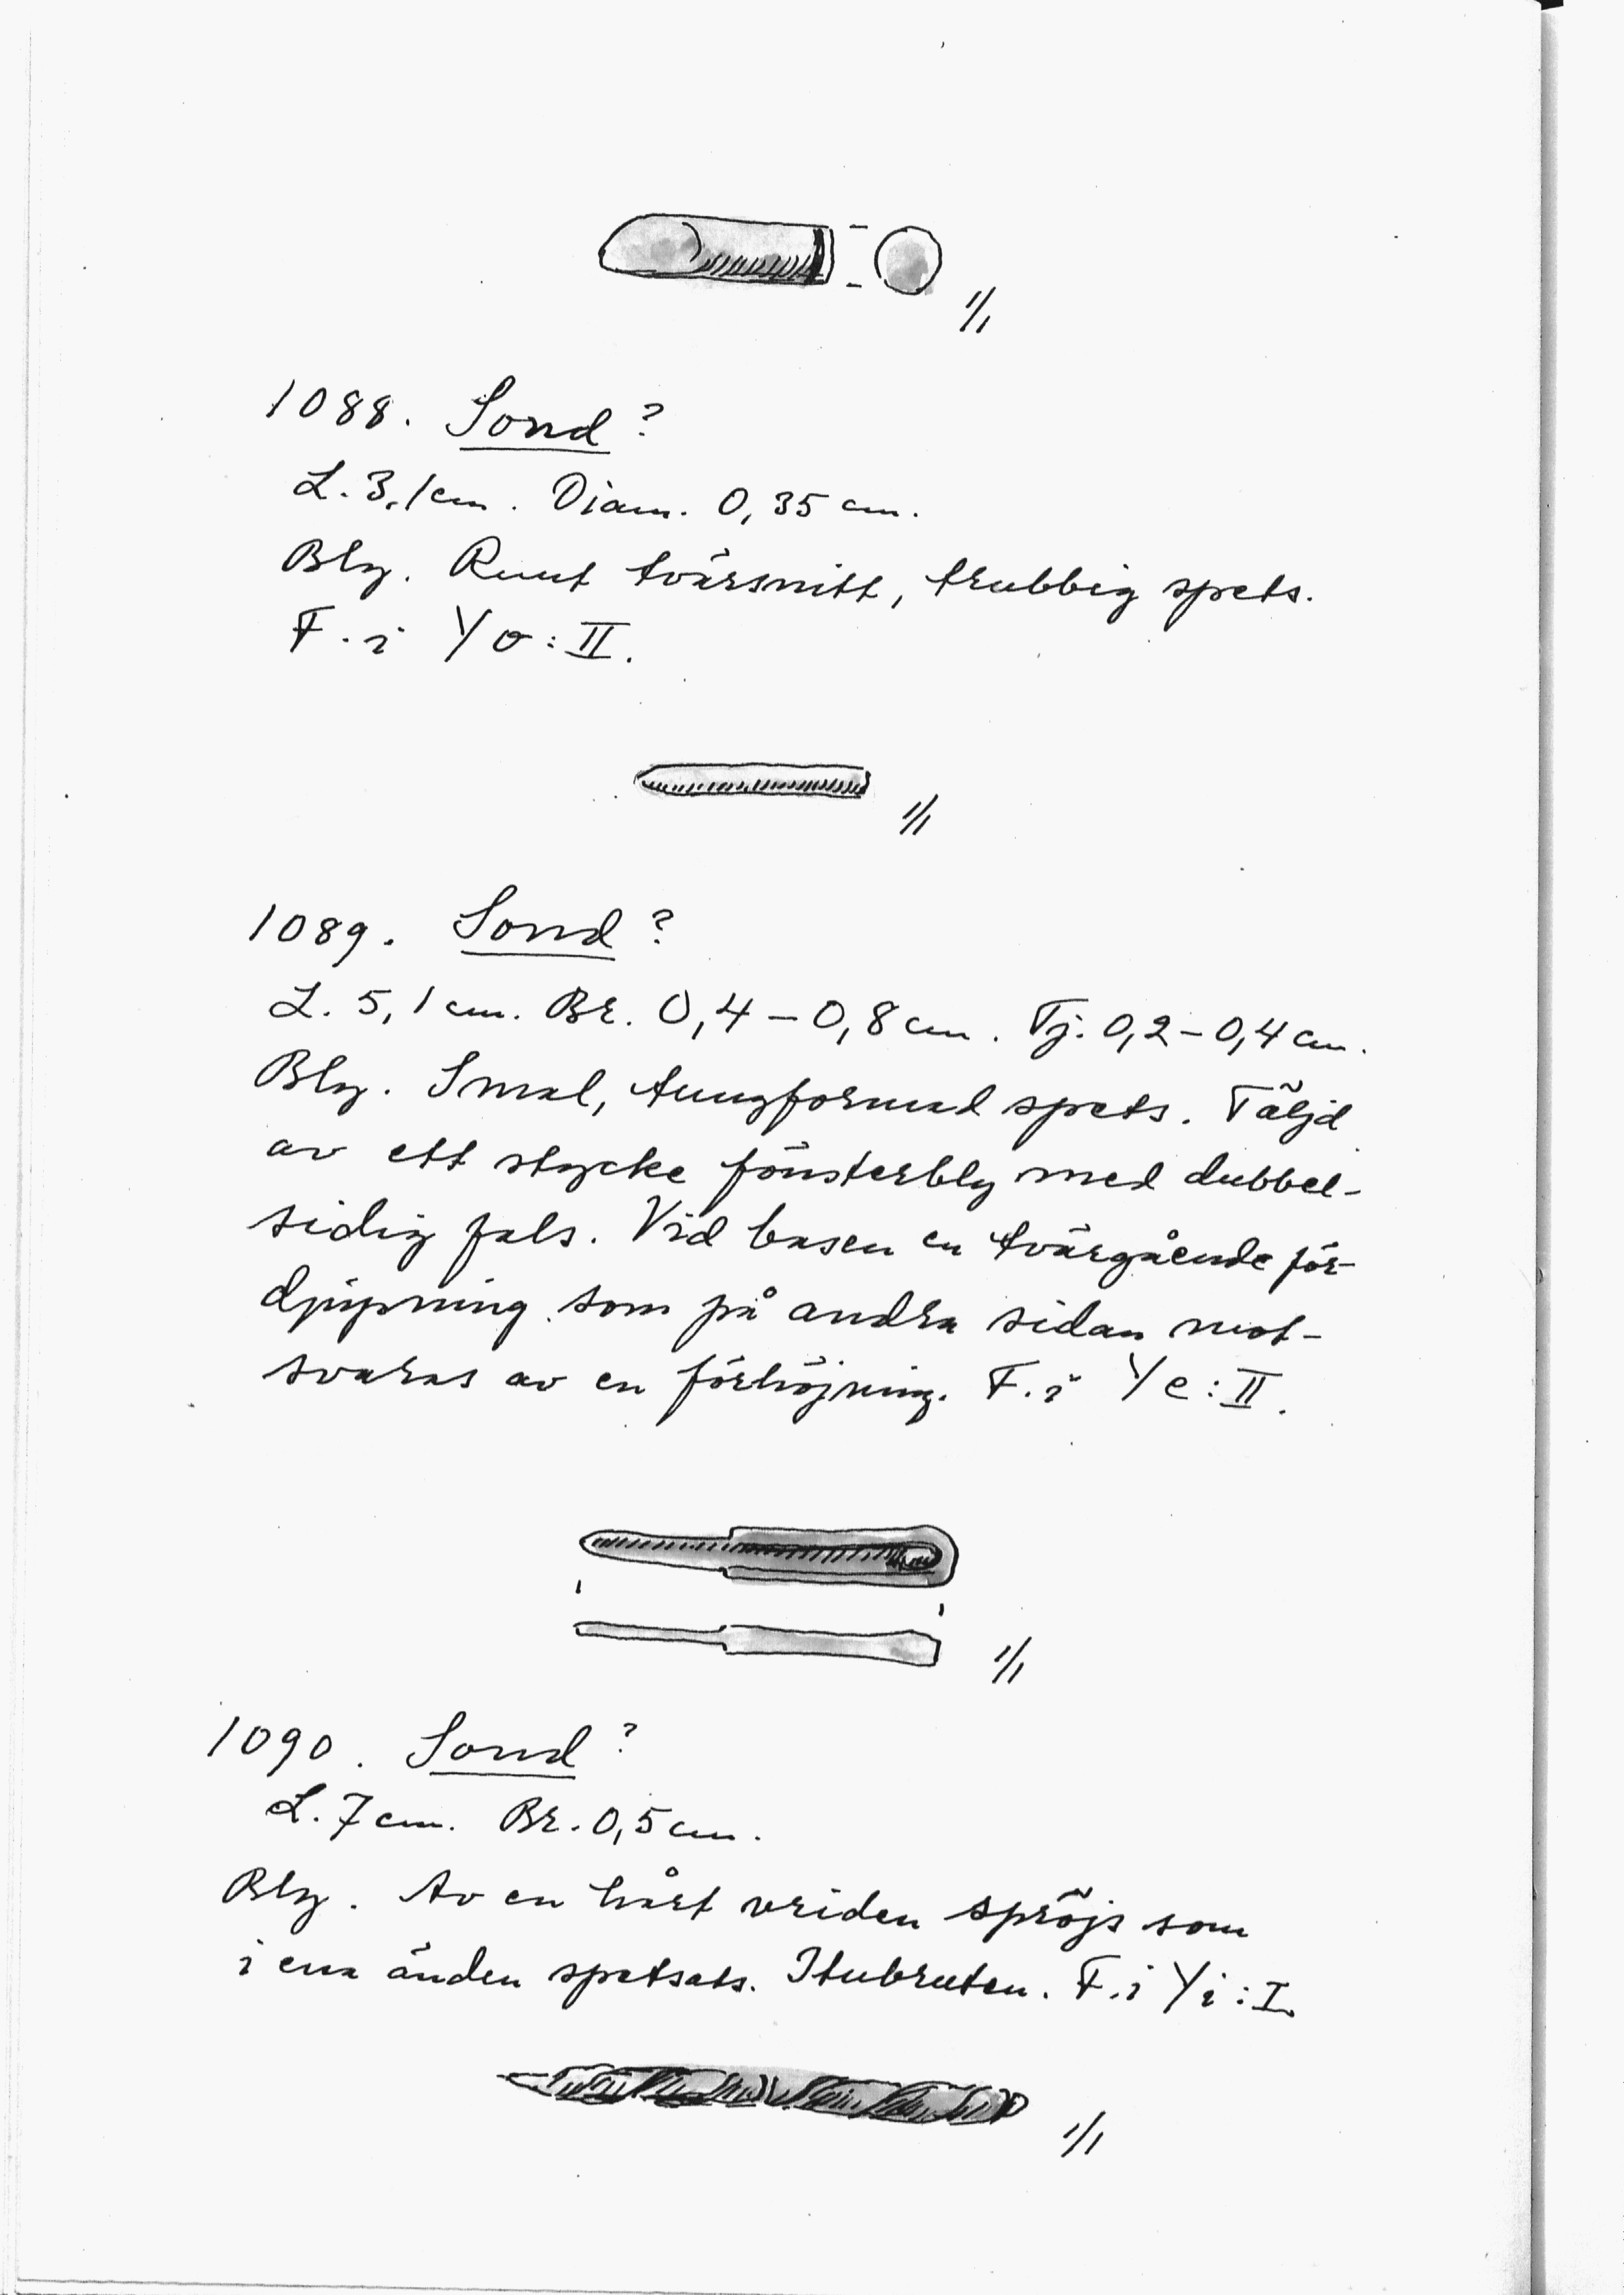 1/1
1088. Sond?
L. 3,1 cm. Diam. 0,35 cm.
Bly. Runt tvärsnitt, trubbig spets.
F. i Yo:II.
1/1
1089. Sond?
L. 5,1 cm. Br. 0,4–0,8 cm. Tj. 0,2–0,4 cm.
Bly. Smal, tungformad spets. Täljd
av ett stycke fönsterbly med dubbel-
sidig fals. Vid basen en tvärgående för-
djupning som på andra sidan mot-
svaras av en förhöjning. F. i Ye:II.
1/1
1090. Sond?
L. 7 cm. Br. 0,5 cm.
Bly. Av en hårt vriden spröjs som
i ena änden spetsats. Itubruten. F. i Yi:I.
1/1